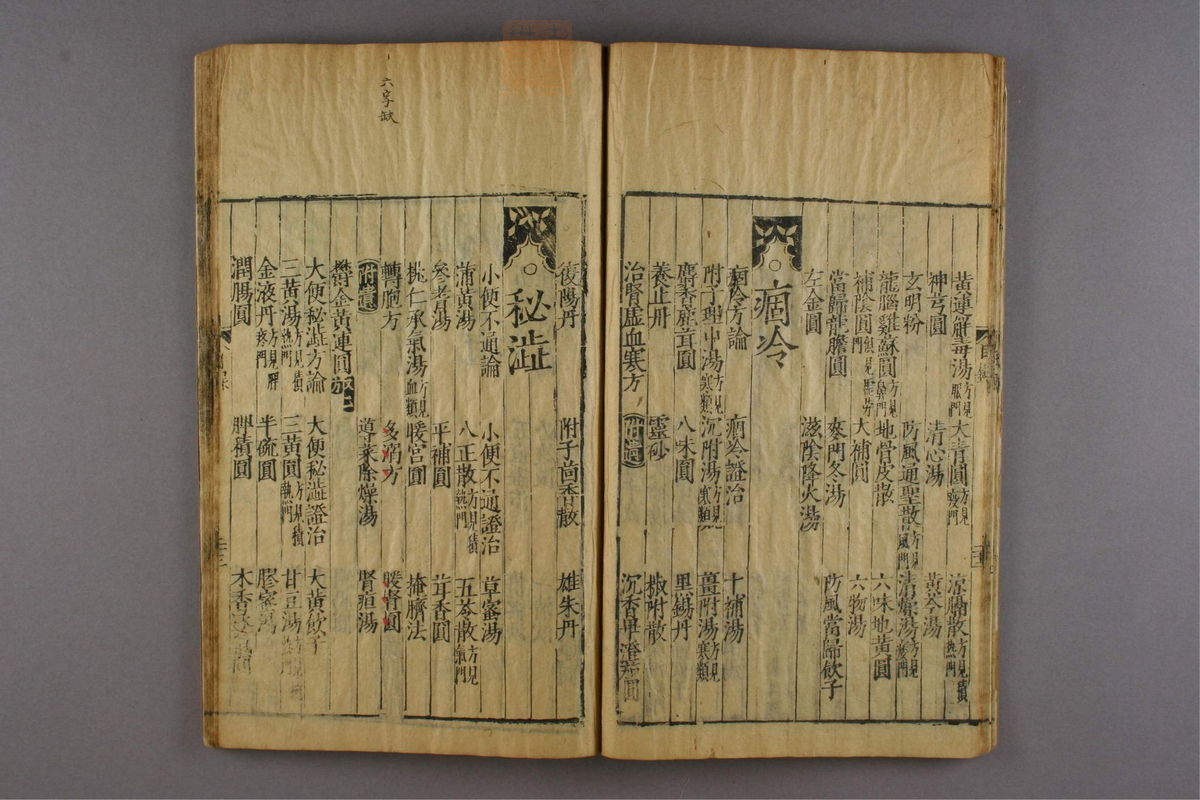 黃連解毒湯 方見眼門 大青圓 方見瘡門 涼膈散 方見積熱門
神芎圓 清心湯 黃芩湯
玄明粉 防風通聖散 方見風門 清涼湯
龍腦雞蘇圓 方見鼻門 地骨皮散 六味地黃圓
補陰圓 方見虛勞門 大補圓 六物湯
當歸龍膽圓 麥門冬湯 防風當歸飲子
左金圓 滋陰降火湯
痼冷
痼冷方論 痼冷證治 十補湯
附子理中湯 方見寒類 沉附湯 方見寒類 薑附湯 方見寒類
麝香鹿茸圓 八味圓 黑錫丹
養正丹 靈砂 椒附散
治腎虛血寒方 附遺 沉香蓽澄茄圓
復陽丹 附子茴香散 雄朱丹
秘澁
小便不通論 小便不通證治 草蜜湯
蒲黃湯 八正散 方見積熱門 五苓散 方見氣門
參耆湯 平補圓 茸香圓
桃仁承氣湯 方見血類 暖宮圓 掩臍法
轉胞方 多溺方 暖腎圓
附遺 導赤除燥湯 腎疸湯
鬱金黃連圓
大便秘澁方論 大便秘澁證治 大黃飲子
三黃湯 方見積熱門 三黃圓 方見積熱門 甘豆湯
金液丹 半硫圓 膠蜜湯
潤腸圓 脾積圓 木香
六字缺